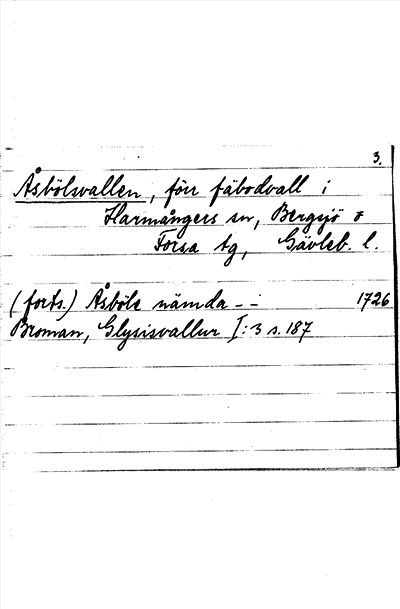 3.
Åsbölsvallen, förr fäbodvall i
Harmångers sn, Bergsjö o
Forsa tg, Gävleb. l.
(forts.) Åsböle nämda – – 1726
Broman, Glysisvallur I:3 s. 187